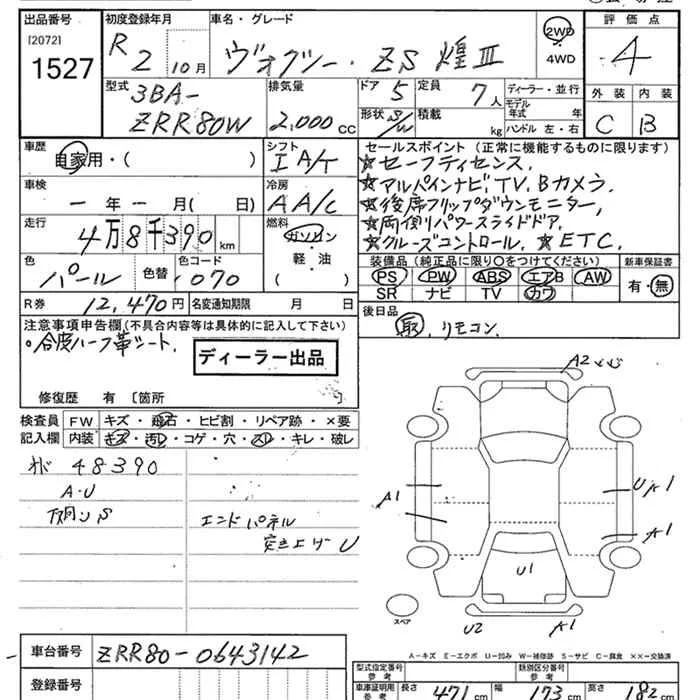 出品番号 初度登録年月 車名・グレード 評価点
[2072]
1527
R 2 10月 ヴォクシー・ZS 煌Ⅲ 2WD 4WD 4
型式 排気量 ドア 5 定員 7人 ディーラー・並行 外装 内装
3BA- 形状 S/W 積載 kg モデル年式 年 C B
ZRR80W 2,000cc ハンドル 左・右
車歴 シフト セールスポイント(正常に機能するものに限ります)
自家用・( ) IA/T ☆セーフティセンス.
車検 冷房 ☆アルパインナビ,TV.Bカメラ.
一年一月( 日) AA/C ☆後席フリップダウンモニター,
走行 燃料 ☆両側パワースライドドア.
4万8千390km ガソリン ☆クルーズコントロール. ☆ETC.
色 色替 色コード 軽・油 装備品(純正品に限り○をつけてください) 新車保証書
パール 070 ( ) PS PW ABS エアB AW 有・無
SR ナビ TV カワ
R券 12,470円 名変通知期限 月 日 後日品
注意事項申告欄(不具合内容等は具体的に記入して下さい) 取,リモコン.
。合皮ハーフ革シート.
ディーラー出品
修復歴 有〔箇所 〕
検査員 FW キズ・飛石・ヒビ割・リペア跡・×要
記入欄 内装 キズ・汚レ・コゲ・穴・スレ・キレ・破レ
48390
A・U
エンドパネル
突上エゲ U
A2
A1
U A1
A1
U1
スペア
U2 A1
A-キズ E-エクボ U-凹み W-補修跡 S-サビ C-腐食 ××-交換済
車台番号 ZRR80-0643142
型式指定番号 参考 類別区分番号 参考
登録番号
車庫証明用 参考 長さ 471cm 幅 173cm 高さ 182cm